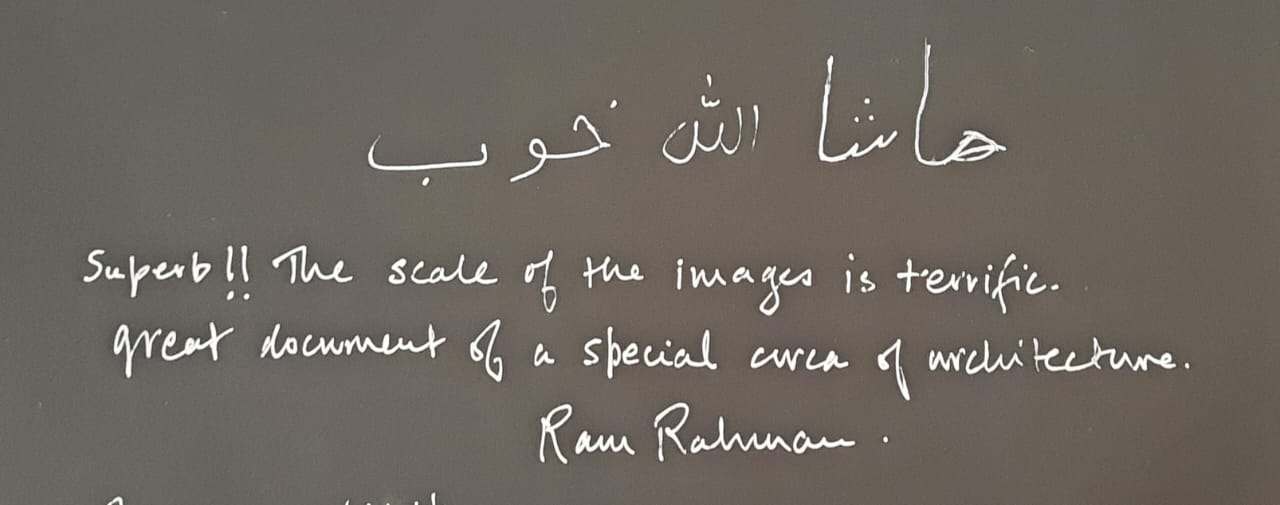 ماشا اللہ خوب
Superb!! The scale of the images is terrific.
great document of a special area of architecture.
Ram Rahman.